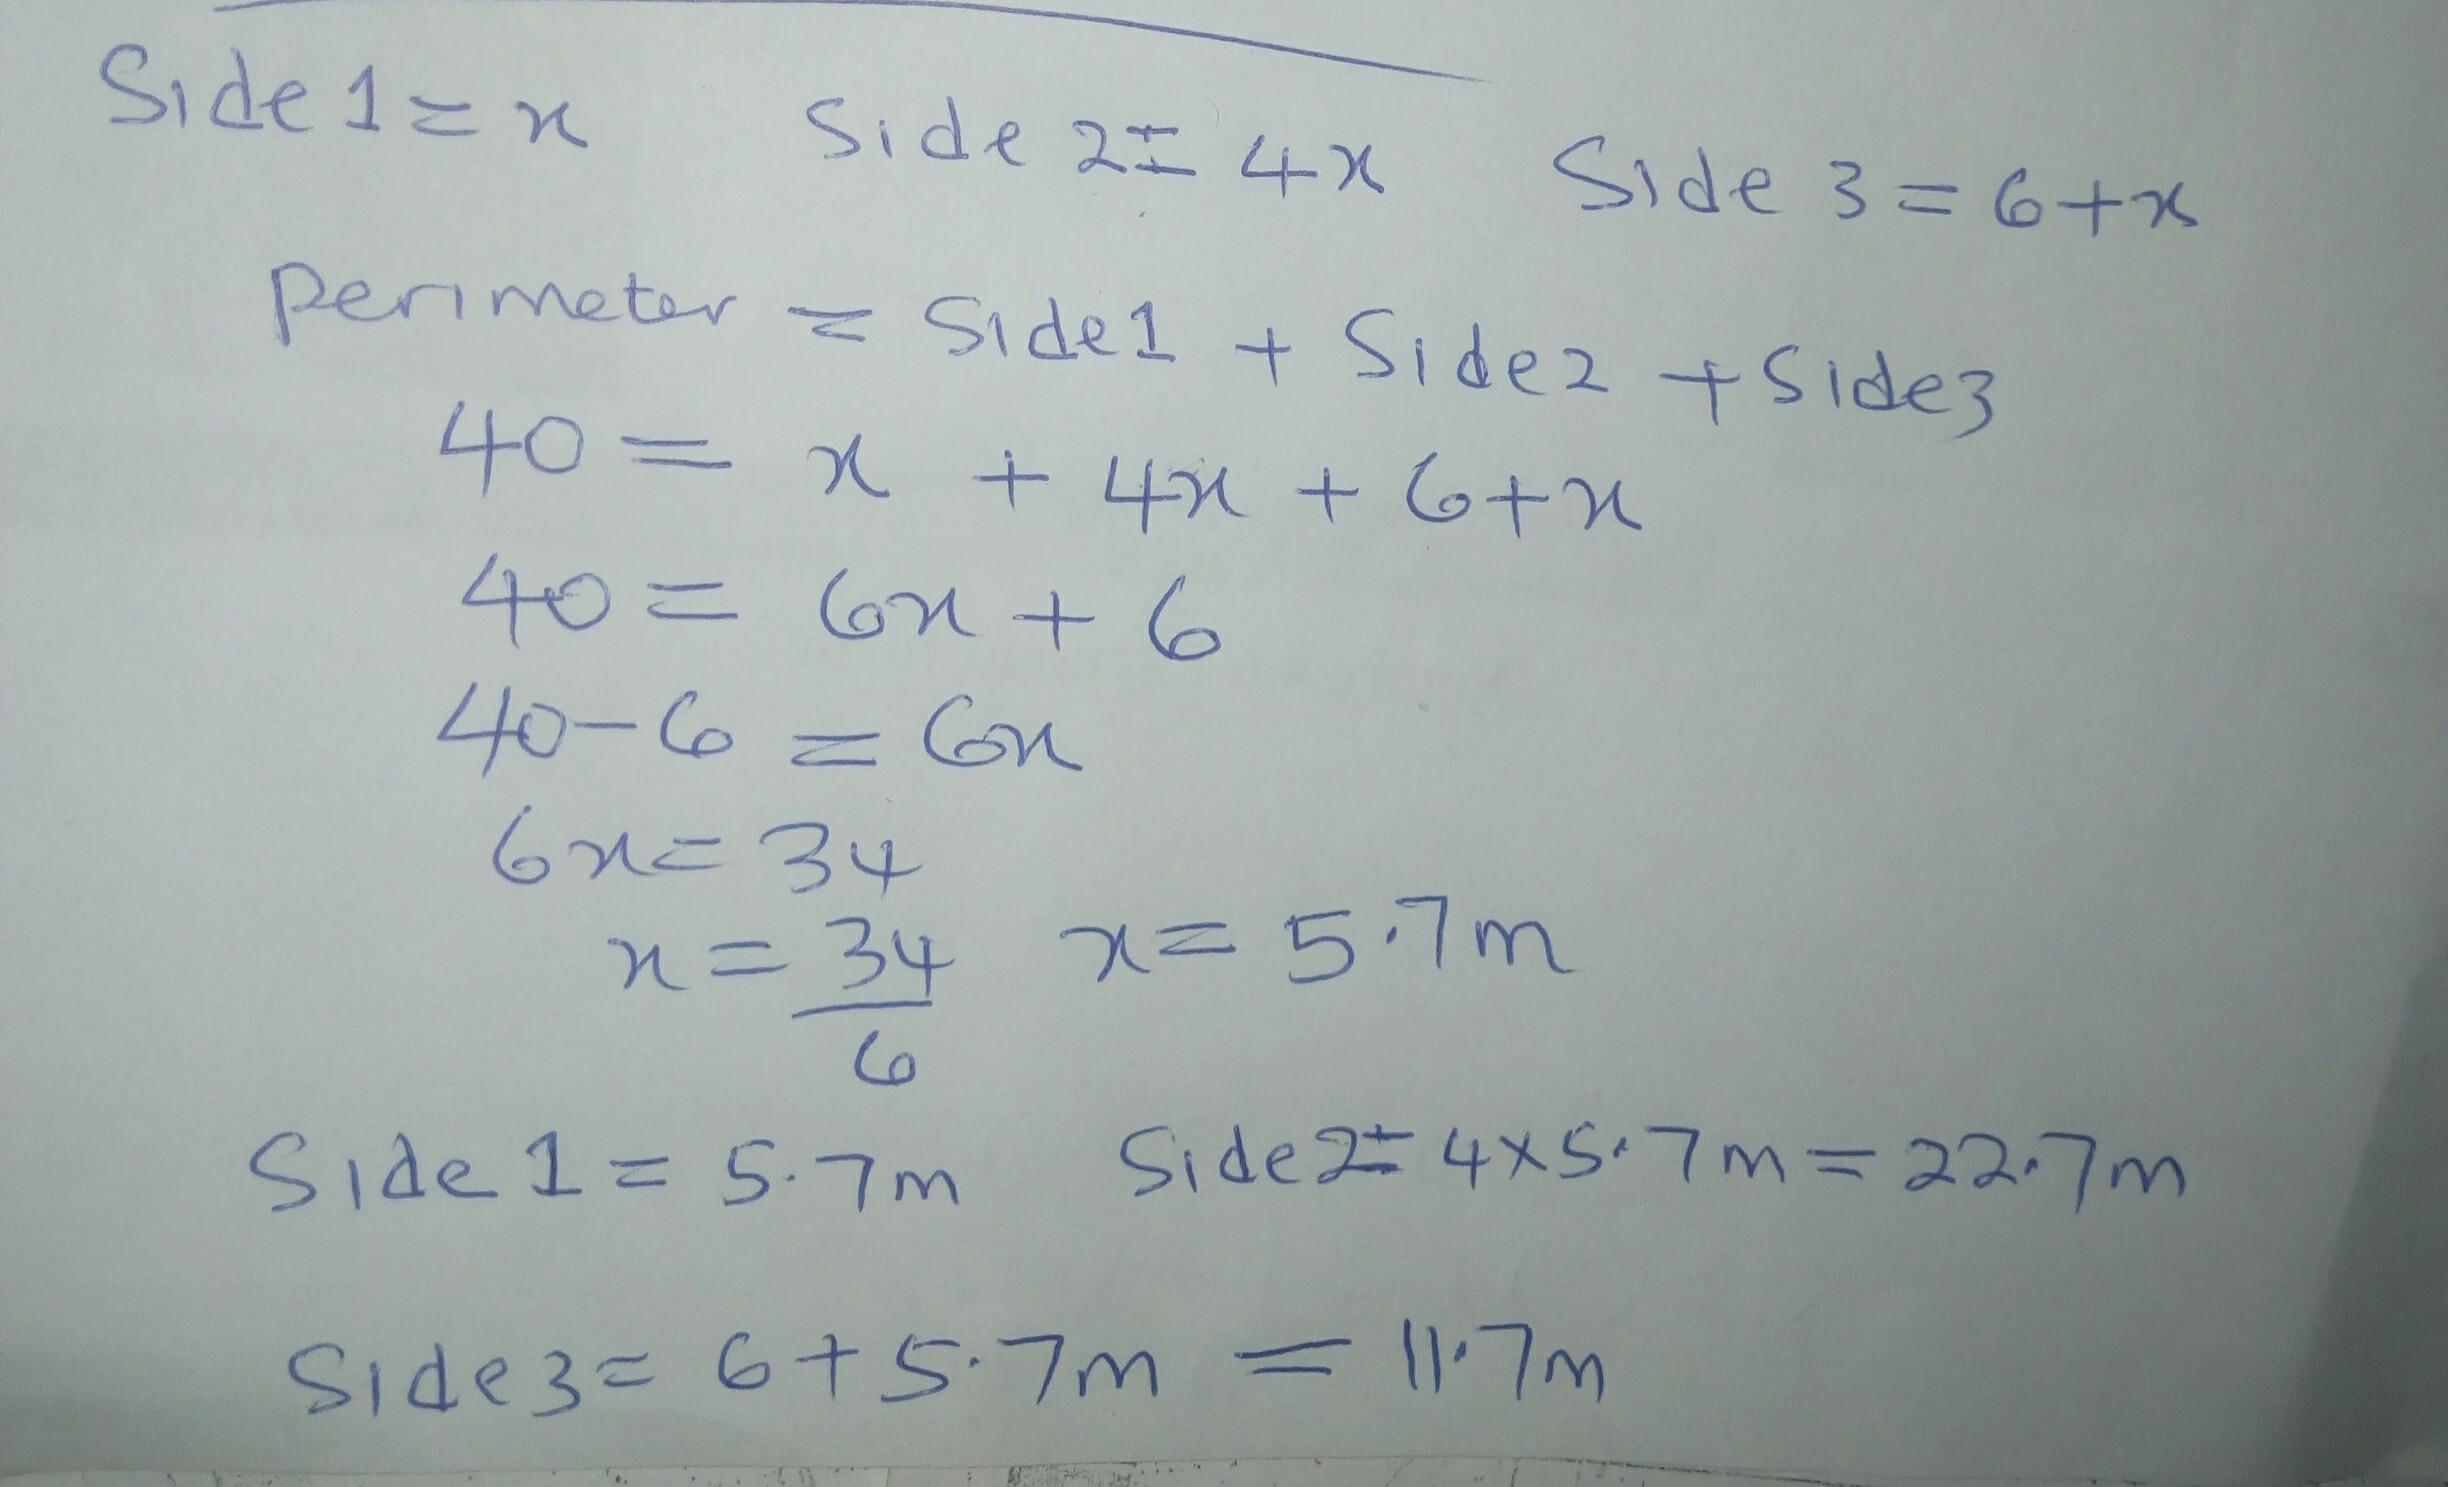 Side 1 = x Side 2 = 4x Side 3 = 6+x
Perimeter = Side1 + Side2 + Side3
40 = x + 4x + 6+x
40 = 6x + 6
40-6 = 6x
6x = 34
x = 34/6 x = 5.7m
Side 1 = 5.7m Side2 = 4x5.7m = 22.7m
Side3 = 6+5.7m = 11.7m